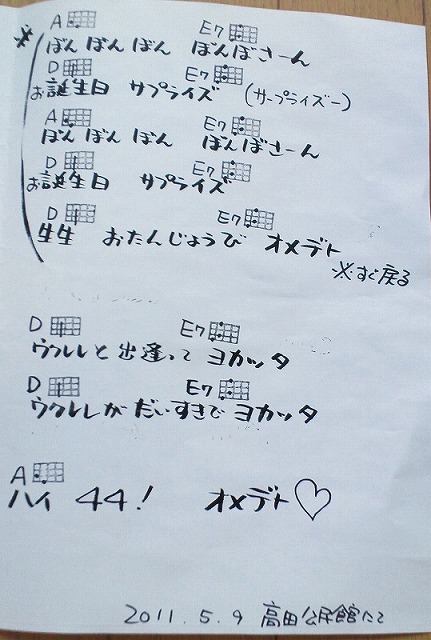 A E7
※ ぼん ぼん ぼん ぼんぼさーん
D E7
お誕生日 サプライズ (サープライズー)
A E7
ぼん ぼん ぼん ぼんぼさーん
D E7
お誕生日 サプライズ
D E7
生生 おたんじょうび オメデト
※すぐ戻る
D E7
ウクレレと 出逢って ヨカッタ
D E7
ウクレレが だいすきで ヨカッタ
A
ハイ 44! オメデト♡
2011.5.9 高田公民館にて